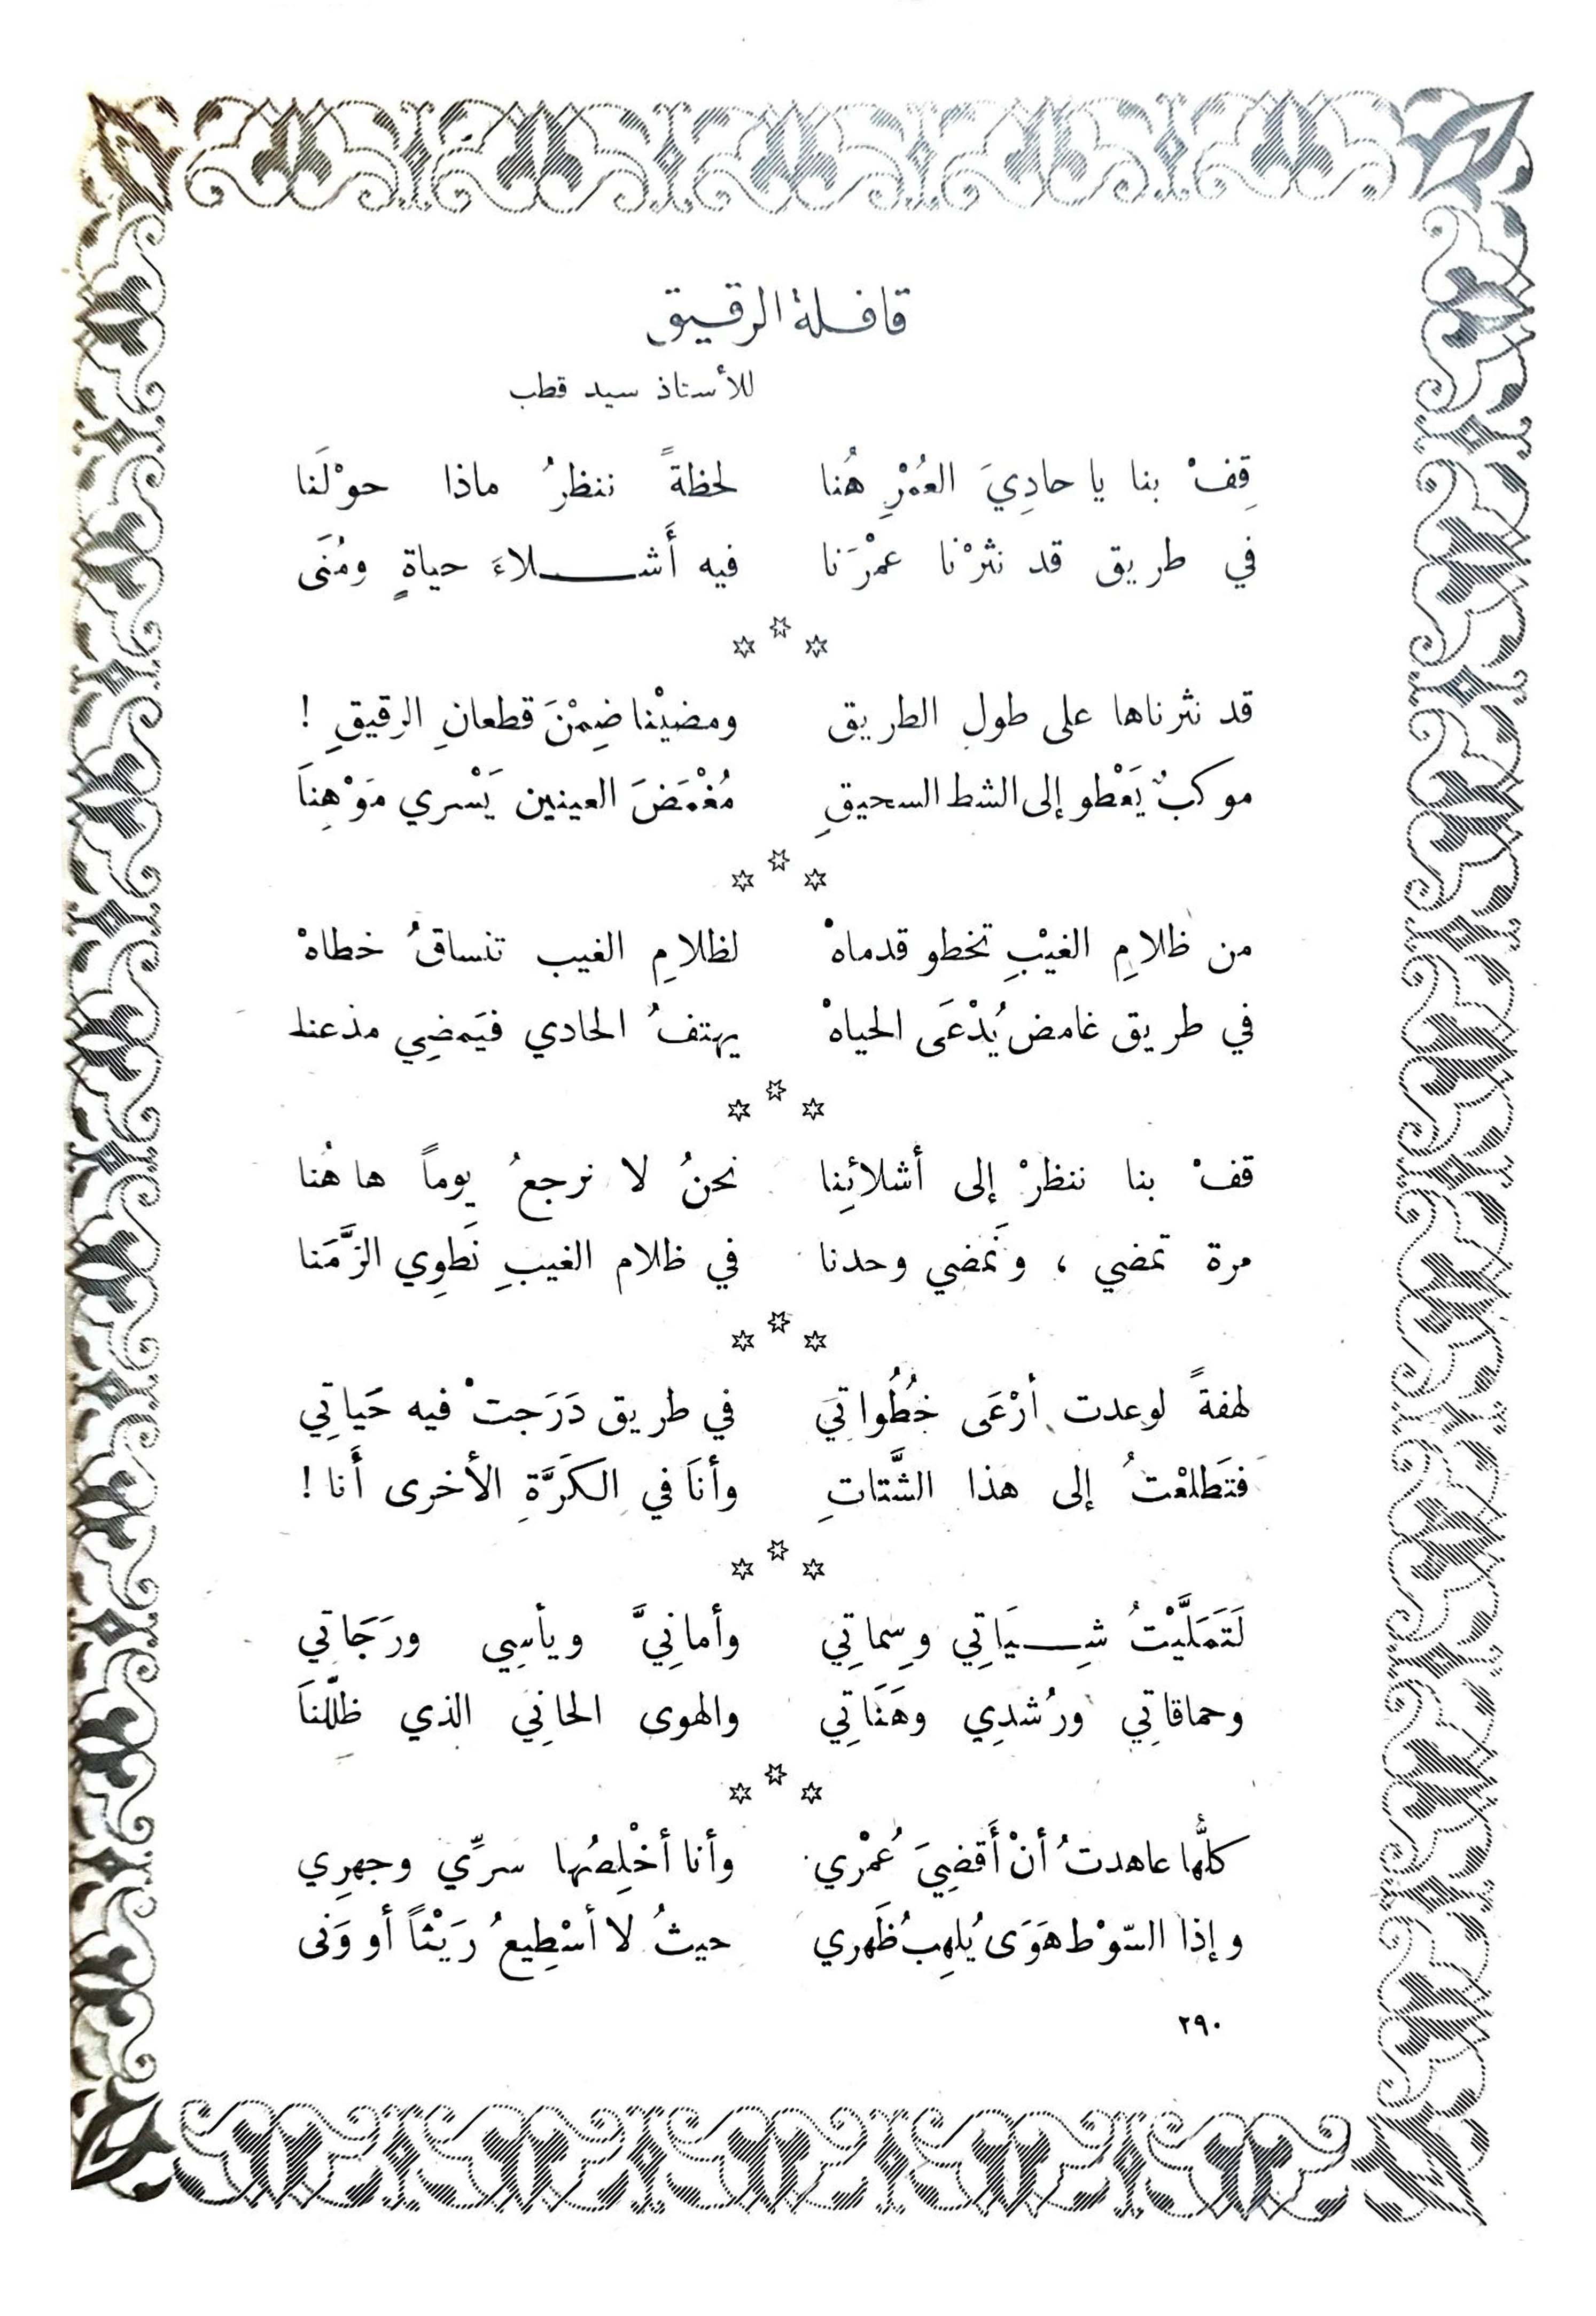 قافلة الرقيق
للأستاذ سيد قطب
قِفْ بنا يا حادِيَ العُمْرِ هُنا لحظةً ننظرُ ماذا حوْلَنا
في طريق قد نثرْنا عمْرَنا فيه أَشـــلاءَ حياةٍ ومُنَى
✡ ✡ ✡
قد نثرناها على طول الطريق ومضيْنا ضِمْنَ قطعانِ الرقيقِ !
موكبٌ يَعْطو إلى الشط السحيقِ مُغْمَضَ العينين يَسْري مَوْهِنَا
✡ ✡ ✡
من ظلامِ الغيْبِ تخطو قدماهْ لظلامِ الغيب تنساقُ خطاهْ
في طريق غامض يُدْعَى الحياهْ يهتفُ الحادي فيَمضِي مذعنا
✡ ✡ ✡
قفْ بنا ننظرْ إلى أشلائِنا نحنُ لا نرجعُ يوماً ها هُنا
مرة تمضي ، ونَمضي وحدنا في ظلام الغيبِ نَطوِي الزَّمَنا
✡ ✡ ✡
لهفةً لو عدت أرْعَى خُطُواتيَ في طريق دَرَجتْ فيه حَياتِي
فتَطلعْتُ إلى هذا الشَّتاتِ وأنَا في الكَرَّةِ الأخرى أَنا !
✡ ✡ ✡
لَتَمَلَّيْتُ شِـــيَاتِي وسِماتِي وأمانِيَّ ويأسِي ورَجَاتِي
وحماقاتِي ورُشدِي وهَنَاتِي والهوى الحانِيَ الذي ظلِّلنَا
✡ ✡ ✡
كلُّها عاهدتُ أنْ أَقضِيَ عُمْري وأنا أخْلِصُها سرِّي وجهرِي
وإذا السّوْط هَوَى يُلهِبُ ظَهري حيثُ لا أسْطِيعُ رَيْثاً أو وَنى
٢٩٠